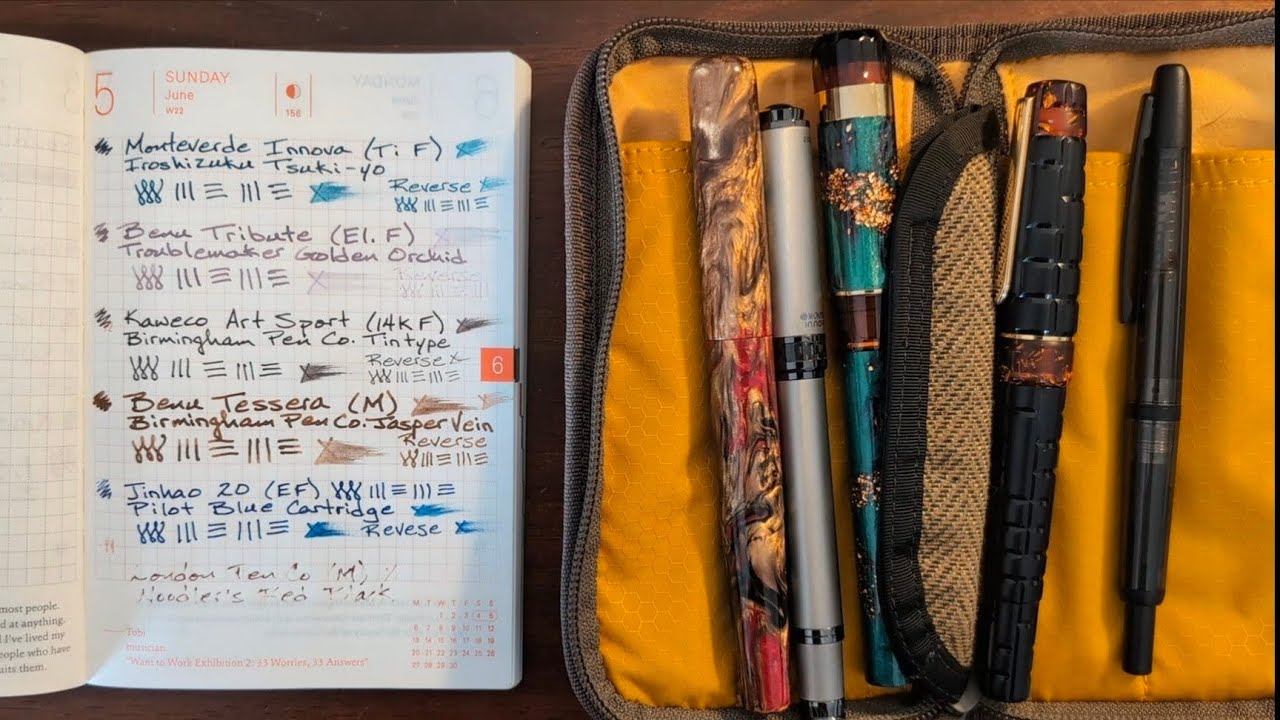 5
SUNDAY
June
W22
156
MONDAY
June
6
Monteverde Innova (Ti F)
Iroshizuku Tsuki-yo
Reverse
Benu Tribute (El. F)
Troublemaker Golden Orchid
Reverse
Kaweco Art Sport (14k F)
Birmingham Pen Co. Tintype
Reverse
6
Benu Tessera (M)
Birmingham Pen Co. Jasper Vein
Reverse
Jinhao 20 (EF)
Pilot Blue Cartridge
Revese
London Pen Co (M)
Noodler's Red Black
M T W T F S S
1 2 3 4 5
6 7 8 9 10 11 12
13 14 15 16 17 18 19
20 21 22 23 24 25 26
27 28 29 30
Tobi
musician
"Want to Work Exhibition 2: 33 Worries, 33 Answers"
most people.
d at anything.
I've lived my
eople who have
uits them.